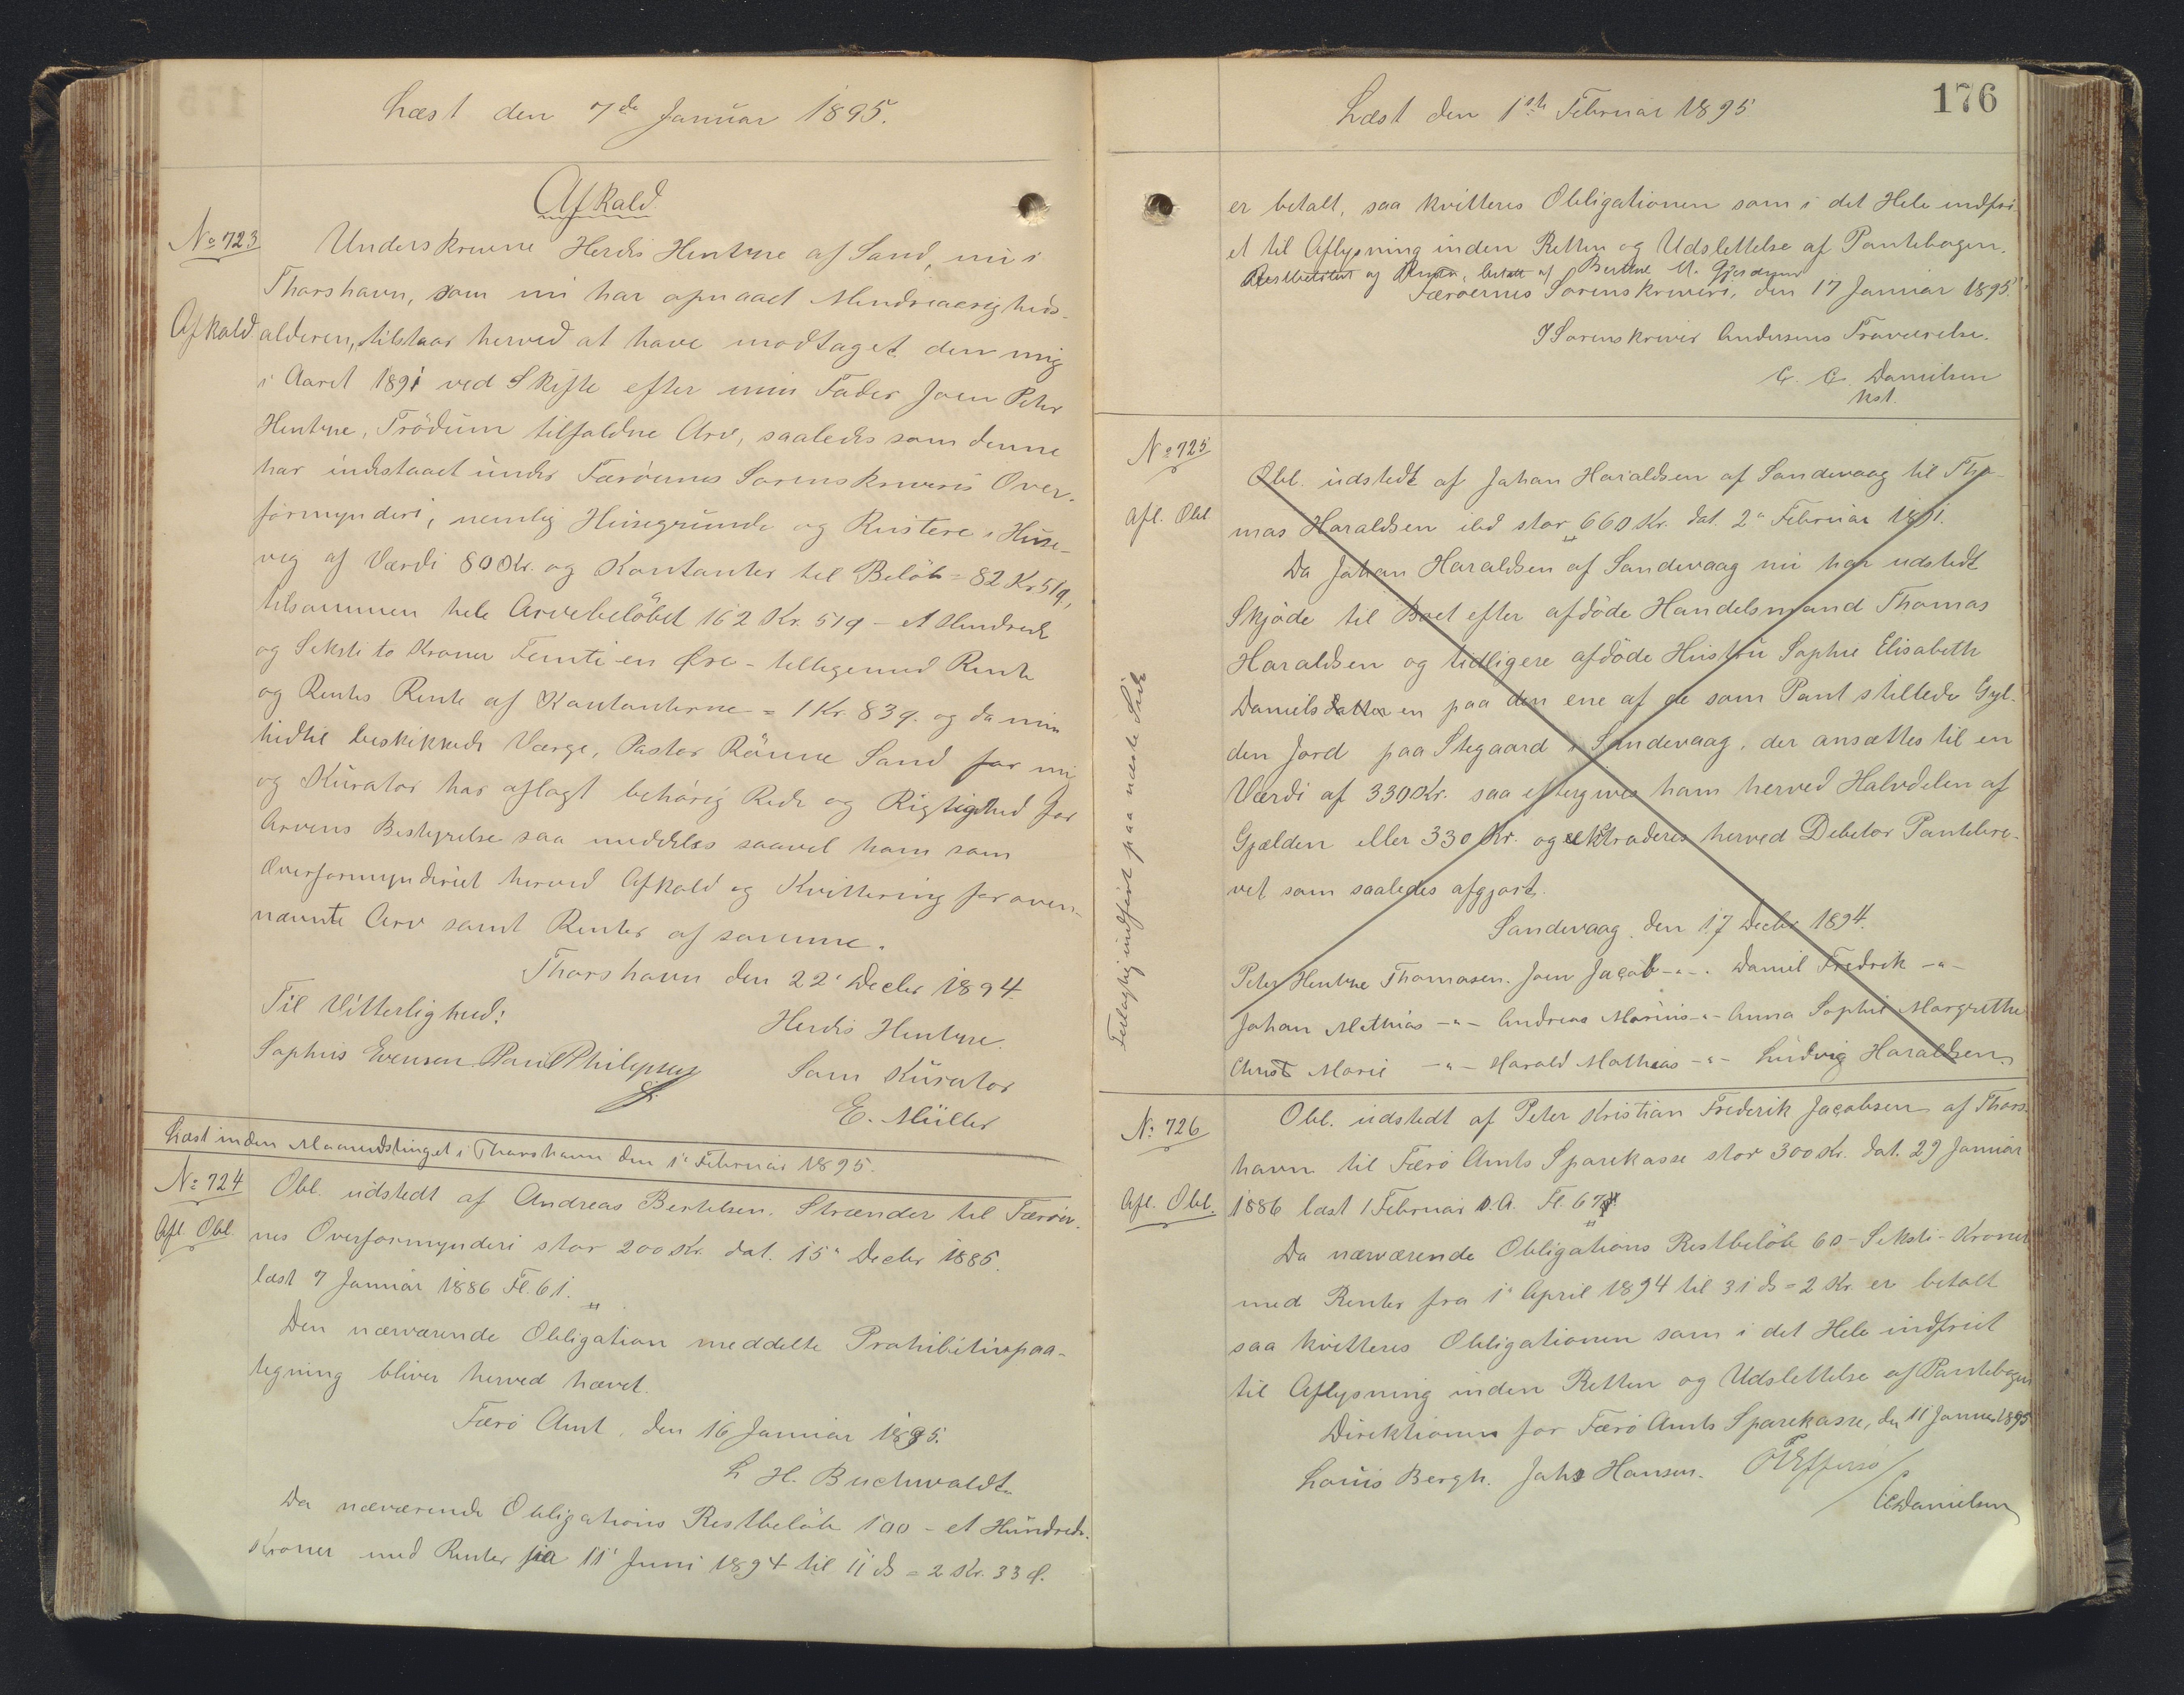 Læst den 7de Januar 1895.
Afkald
No 723
Underskrevne Herdis Hentze af Sand, nu i
Thorshavn, som nu har opnaaet Mindreaarigheds-
Afkald
alderen, tilstaar herved at have modtaget den mig
i Aaret 1891 ved Skifte efter min Fader Joen Peter
Hentze, Trödum tilfaldne Arv, saaledes som denne
har indestaaet under Færöernes Sorenskriveris Over-
formynderi, nemlig Husegrunde og Ristere i Huse-
veg af Værdi 80 Kr. og Kontanter til Belöb = 82 Kr 51 q,
tilsammen hele Arvebelöbet 162 Kr. 51 q - et Hundrede
og Seksti to Kroner Femti en Öre - tilligemed Rente
og Rentes Rente af Kontanterne = 1 Kr. 83 q. og da min
hidtil beskikkede Værge, Pastor Rönne Sand for mig
og Kurator har aflagt behörig Rede og Rigtighed for
Arvens Bestyrelse saa meddeles saavel ham som
Overformynderiet herved Afkald og Kvittering for oven-
nævnte Arv samt Renter af samme.
Thorshavn den 22' Decbr 1894.
Til Vitterlighed:
Herdis Hentze.
Sophus Evensen. Poul Philipsen
Som Kurator
E. Müller
Læst inden Maanedstinget i Thorshavn den 1' Februar 1895.
No 724
Obl. udstedt af Andreas Bertelsen. Strænder til Færöer-
Afl. Obl.
nes Overformynderi stor 200 Kr. dat. 15' Decbr 1885.
læst 7 Januar 1886 Fl. 61. "
Den nærværende Obligation meddelte Prohibitivpaa-
tegning bliver herved hævet.
Færö Amt, den 16 Januar 1895.
L H. Buchwaldt
Da nærværende Obligations Restbelöb 100 - et Hundrede
Kroner med Renter fra 11' Juni 1894 til 11 ds = 2 Kr. 33 Ø.
176
Læst den 1ste Februar 1895
er betalt, saa kvitteres Obligationen som i det Hele indfri-
et til Aflysning inden Retten og Udslettelse af Pantebogen.
Restbelöbet og Renter betalt af M. Gjerdum
Færöernes Sorenskriveri, den 17 Januar 1895.
I Sorenskriver Andersens Fraværelse.
C. C. Danielsen
Kst.
No 725
Obl. udstedt af Johan Haraldsen af Sandevaag til Tho-
Afl. Obl
mas Haraldsen ibd stor 660 Kr. dat. 2' Februar 1891.
Da Johan Haraldsen af Sandevaag nu har udstedt
Skjöde til Boet efter afdöde Handelsmand Thomas
Haraldsen og tidligere afdöde Hustru Sophie Elisabeth
Danielsdatter en paa den ene af de som Pant stillede Gyl-
den Jord paa Stegaard i Sandevaag, der ansættes til en
Værdi af 330 Kr. saa eftergives ham herved Halvdelen af
Gjælden eller 330 Kr. og ekstraderes herved Debitor Pantebre-
vet som saaledes afgjort.
Sandevaag, den 17 Decbr 1894.
Peter Hentze Thomasen. Joen Jacob -"-. Daniel Fredrik -"-
Johan Mathias -"- Andreas Marius -"- Anna Sophie Margrethe
Christ Marie -"- Harald Mathias -"- Ludvig Haraldsen.
Feilagtig indfört paa næste Side
No 726
Obl. udstedt af Peter Kristian Frederik Jacobsen af Thors-
havn til Færö Amts Sparekasse stor 300 Kr. dat. 29 Januar
Afl. Obl.
1886 læst 1 Februar s.A. Fl. 67. "
Da nærværende Obligations Restbelöb 60 - Seksti - Kroner
med Renter fra 1' April 1894 til 31 ds = 2 Kr. er betalt
saa kvitteres Obligationen som i det Hele indfriet
til Aflysning inden Retten og Udslettelse af Pantebogen
Direktionen for Færö Amts Sparekasse, den 11 Januar 1895
Louis Bergh. Johs Hansen. Effersö
CC Danielsen